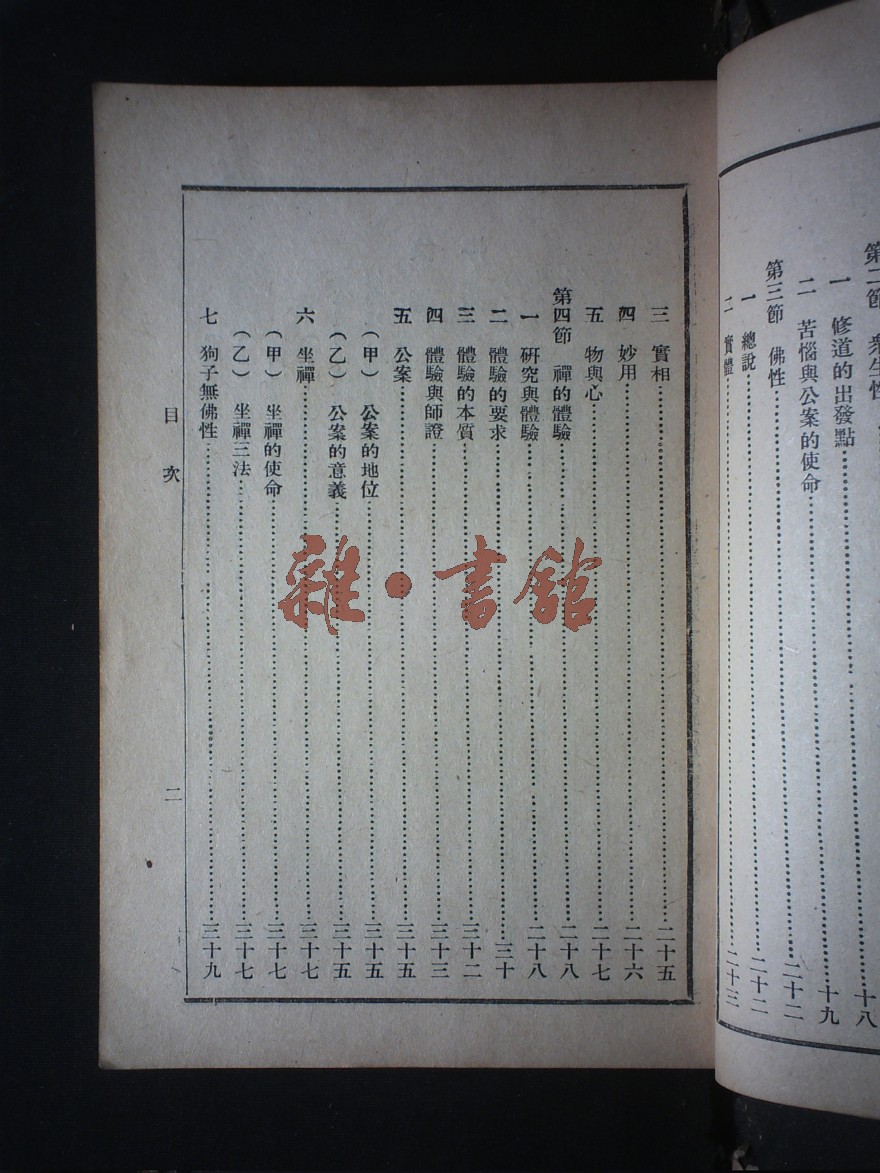 第二節 衆生性
一 修道的出發點……十八
二 苦惱與公案的使命……十九
第三節 佛性……二十二
一 總說……二十二
二 實體……二十三
三 實相……二十五
四 妙用……二十六
五 物與心……二十七
第四節 禪的體驗……二十八
一 研究與體驗……二十八
二 體驗的要求……三十
三 體驗的本質……三十二
四 體驗與師證……三十三
五 公案……三十五
（甲） 公案的地位……三十五
（乙） 公案的意義……三十五
六 坐禪……三十七
（甲） 坐禪的使命……三十七
（乙） 坐禪三法……三十七
七 狗子無佛性……三十九
目次
二
雜·書館